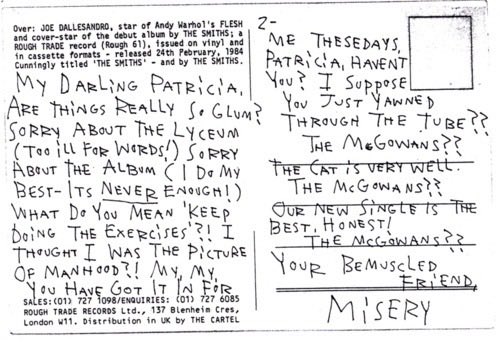 Over: JOE DALLESANDRO, star of Andy Warhol's FLESH
and cover-star of the debut album by THE SMITHS; a
ROUGH TRADE record (Rough 61), issued on vinyl and
in cassette formats - released 24th February, 1984
Cunningly titled 'THE SMITHS' - and by THE SMITHS.
MY DARLING PATRICIA,
ARE THINGS REALLY SO GLUM?
SORRY ABOUT THE LYCEUM
(TOO ILL FOR WORDS!) SORRY
ABOUT THE ALBUM (I DO MY
BEST- ITS NEVER ENOUGH!)
WHAT DO YOU MEAN 'KEEP
DOING THE EXERCISES'?! I
THOUGHT I WAS THE PICTURE
OF MANHOOD?! MY, MY,
YOU HAVE GOT IT IN FOR
SALES:(01) 727 1098/ENQUIRIES: (01) 727 6085
ROUGH TRADE RECORDS Ltd., 137 Blenheim Cres,
London W11. Distribution in UK by THE CARTEL
2-
ME THESEDAYS,
PATRICIA, HAVENT
YOU? I SUPPOSE
YOU JUST YAWNED
THROUGH THE TUBE??
THE McGOWANS??
THE CAT IS VERY WELL.
THE McGOWANS??
OUR NEW SINGLE IS THE
BEST, HONEST!
THE McGOWANS??
YOUR BEMUSCLED
FRIEND,
MISERY